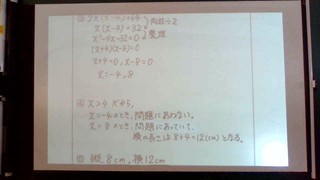 2x(x-4)=64
x(x-4)=32 両辺÷2
x²-4x-32=0 整理
(x+4)(x-8)=0
x+4=0, x-8=0
x=-4, 8
x>4 だから,
x=-4のとき, 問題にあわない。
x=8のとき, 問題にあっていて,
横の長さは 8+4=12(cm)となる。
縦 8cm, 横12cm